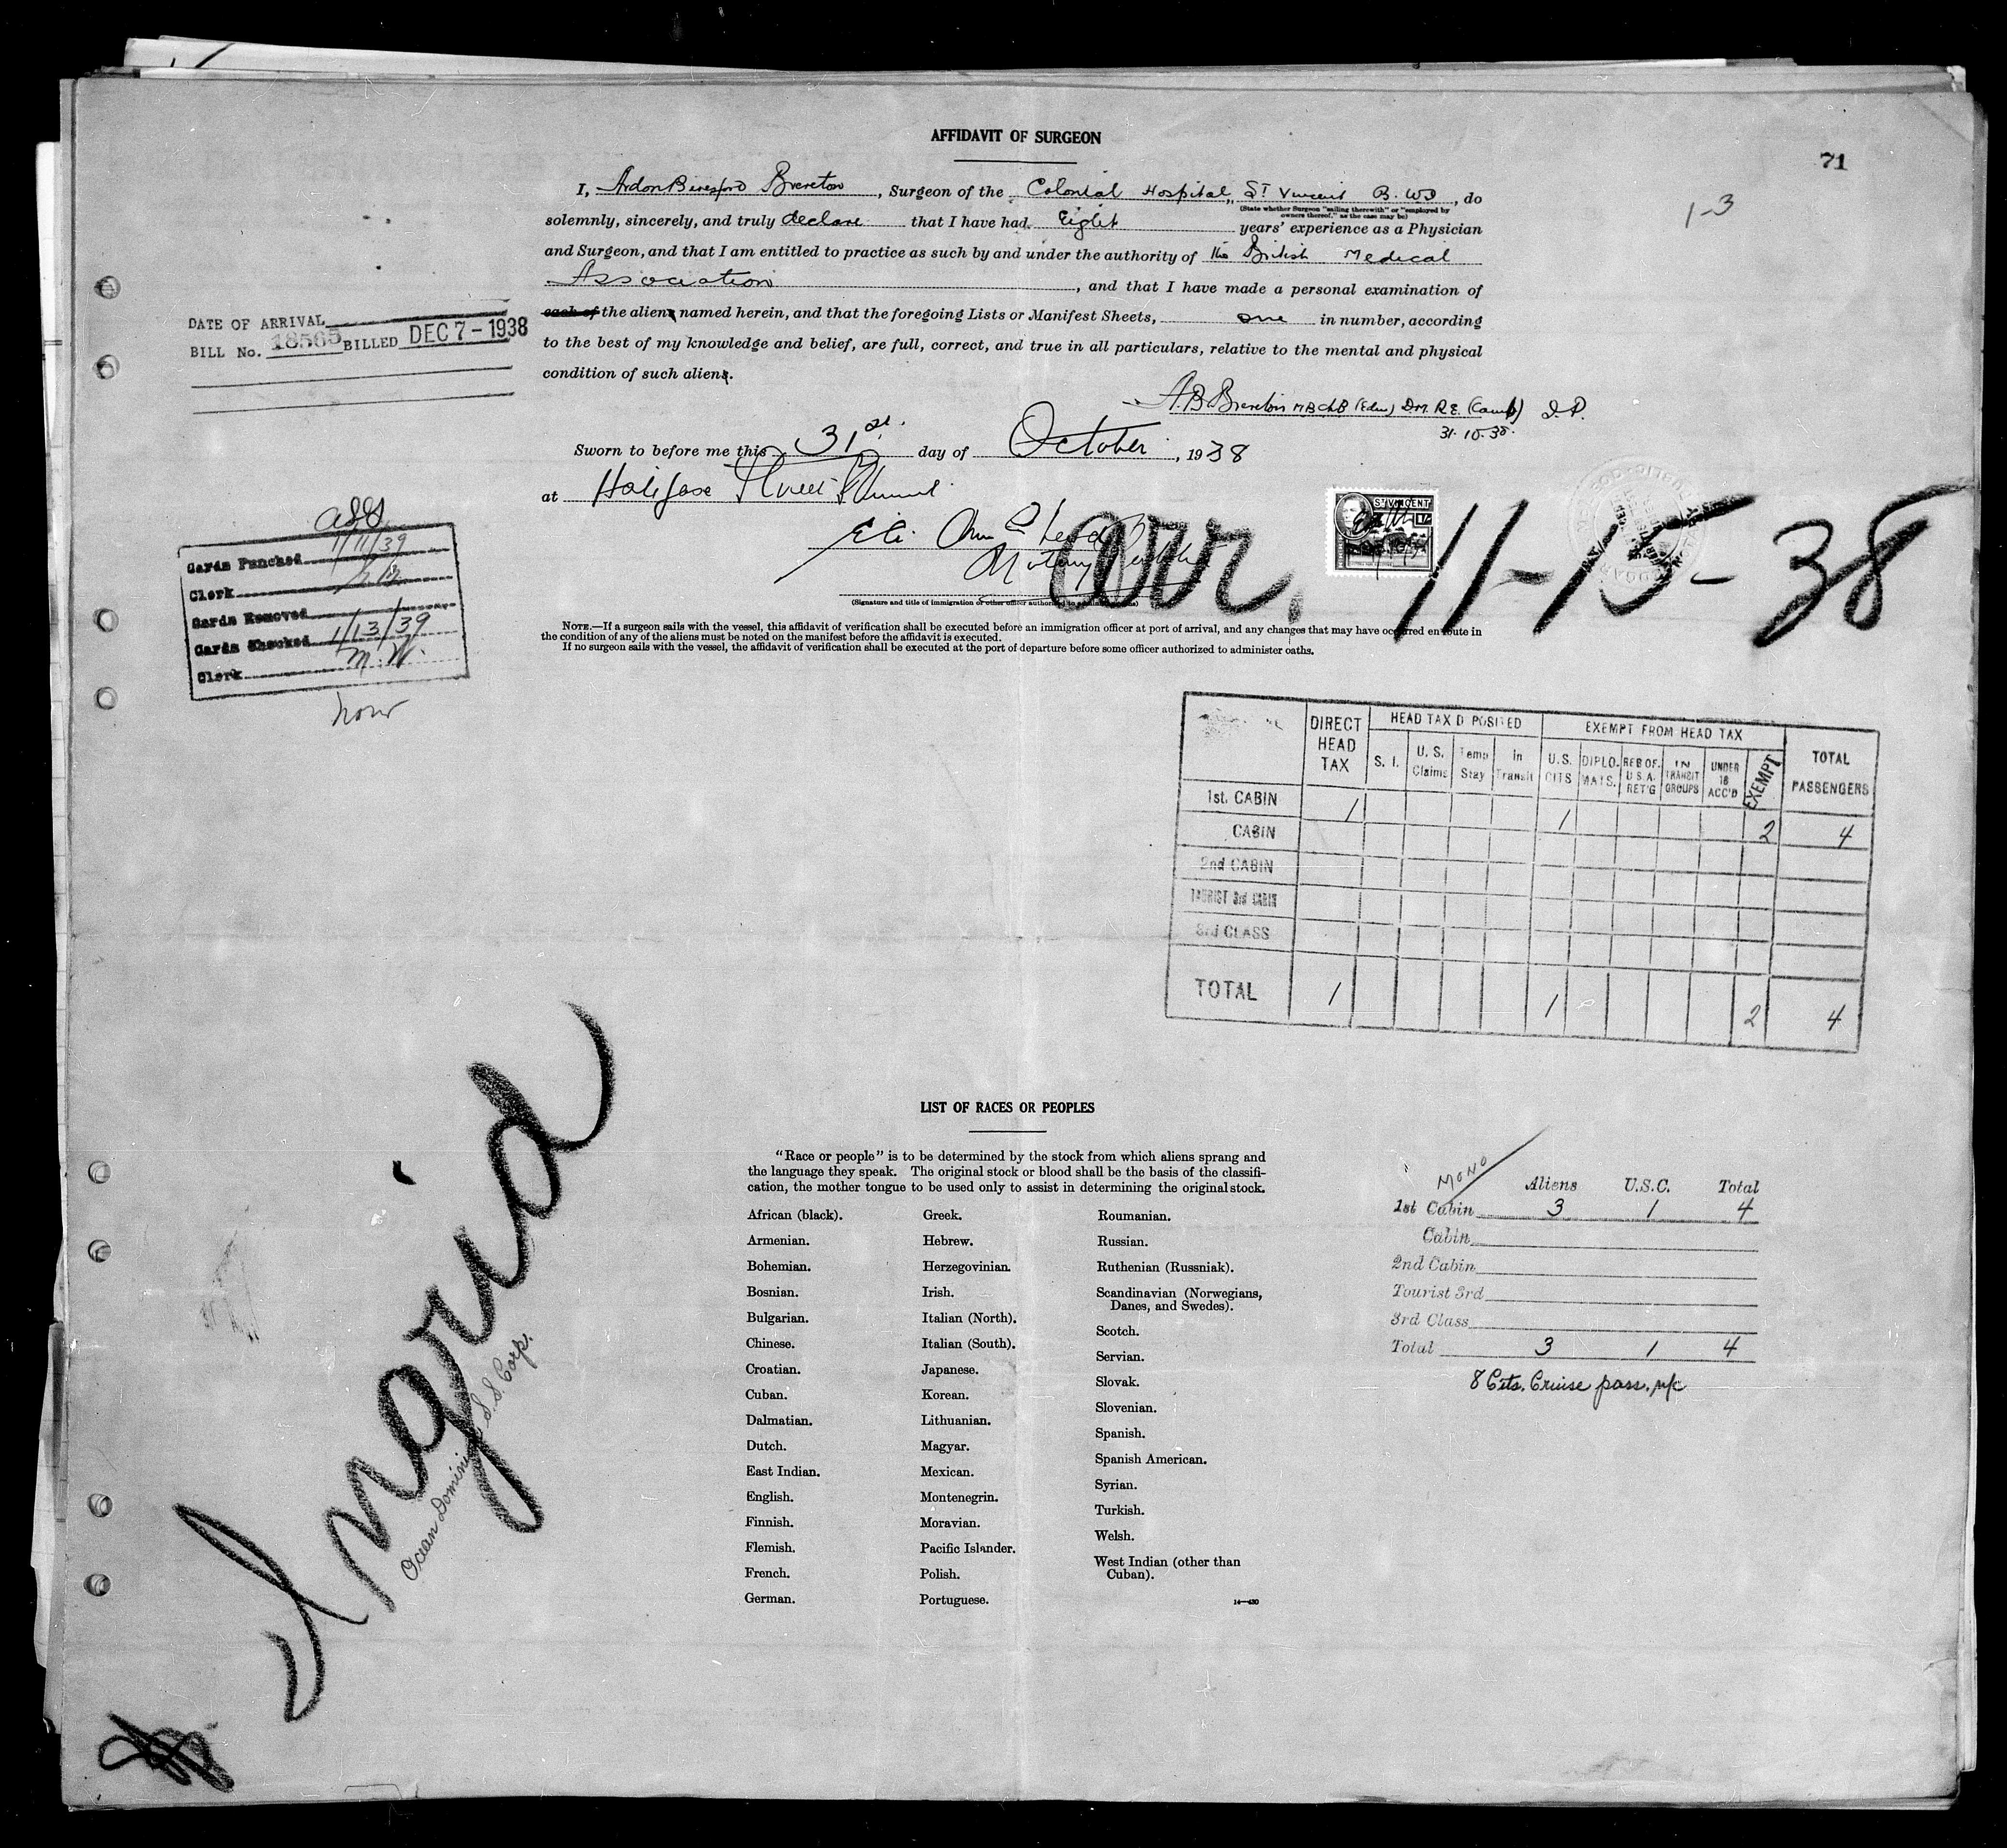 AFFIDAVIT OF SURGEON
71
1-3
I, Ardon Beresford Brereton, Surgeon of the Colonial Hospital, St Vincent B.W.I, do
(State whether Surgeon "sailing therewith" or "employed by
owners thereof," as the case may be)
solemnly, sincerely, and truly declare that I have had Eight years' experience as a Physician
and Surgeon, and that I am entitled to practice as such by and under the authority of the British Medical
Association, and that I have made a personal examination of
each of the aliens named herein, and that the foregoing Lists or Manifest Sheets, one in number, according
to the best of my knowledge and belief, are full, correct, and true in all particulars, relative to the mental and physical
condition of such aliens.
DATE OF ARRIVAL
BILL No. 18565 BILLED DEC 7-1938
A.B Brereton M.B Ch.B (Edin) D.M.R.E. (Camb) J.P.
31.10.38.
Sworn to before me this 31st day of October, 1938
at Halifax Street
Notary Public
ST VINCENT
arr. 11-15-38
(Signature and title of immigration or other officer authorized to administer oaths)
NOTE.—If a surgeon sails with the vessel, this affidavit of verification shall be executed before an immigration officer at port of arrival, and any changes that may have occurred en route in
the condition of any of the aliens must be noted on the manifest before the affidavit is executed.
If no surgeon sails with the vessel, the affidavit of verification shall be executed at the port of departure before some officer authorized to administer oaths.
Cards Punched 1/11/39
Clerk
Cards Removed
Cards Checked 1/13/39
Clerk M.W.
DIRECT HEAD TAX
HEAD TAX D POSITED
EXEMPT FROM HEAD TAX
TOTAL PASSENGERS
S. I. U. S. Claims Temp Stay in Transit U.S. CITS DIPLO-MATS. RES OF U.S.A. RET'G IN TRANSIT GROUPS UNDER 16 ACC'D EXEMPT
1st. CABIN 1 1 2 4
CABIN
2nd CABIN
TOURIST 3rd CABIN
3rd CLASS
TOTAL 1 1 2 4
Ingrid
Ocean Dominion S.S. Corp.
LIST OF RACES OR PEOPLES
"Race or people" is to be determined by the stock from which aliens sprang and
the language they speak. The original stock or blood shall be the basis of the classifi-
cation, the mother tongue to be used only to assist in determining the original stock.
African (black).
Armenian.
Bohemian.
Bosnian.
Bulgarian.
Chinese.
Croatian.
Cuban.
Dalmatian.
Dutch.
East Indian.
English.
Finnish.
Flemish.
French.
German.
Greek.
Hebrew.
Herzegovinian.
Irish.
Italian (North).
Italian (South).
Japanese.
Korean.
Lithuanian.
Magyar.
Mexican.
Montenegrin.
Moravian.
Pacific Islander.
Polish.
Portuguese.
Roumanian.
Russian.
Ruthenian (Russniak).
Scandinavian (Norwegians,
Danes, and Swedes).
Scotch.
Servian.
Slovak.
Slovenian.
Spanish.
Spanish American.
Syrian.
Turkish.
Welsh.
West Indian (other than
Cuban).
14—430
MONO
Aliens U.S.C. Total
1st Cabin 3 1 4
Cabin
2nd Cabin
Tourist 3rd
3rd Class
Total 3 1 4
8 Cits. Cruise pass. n/c